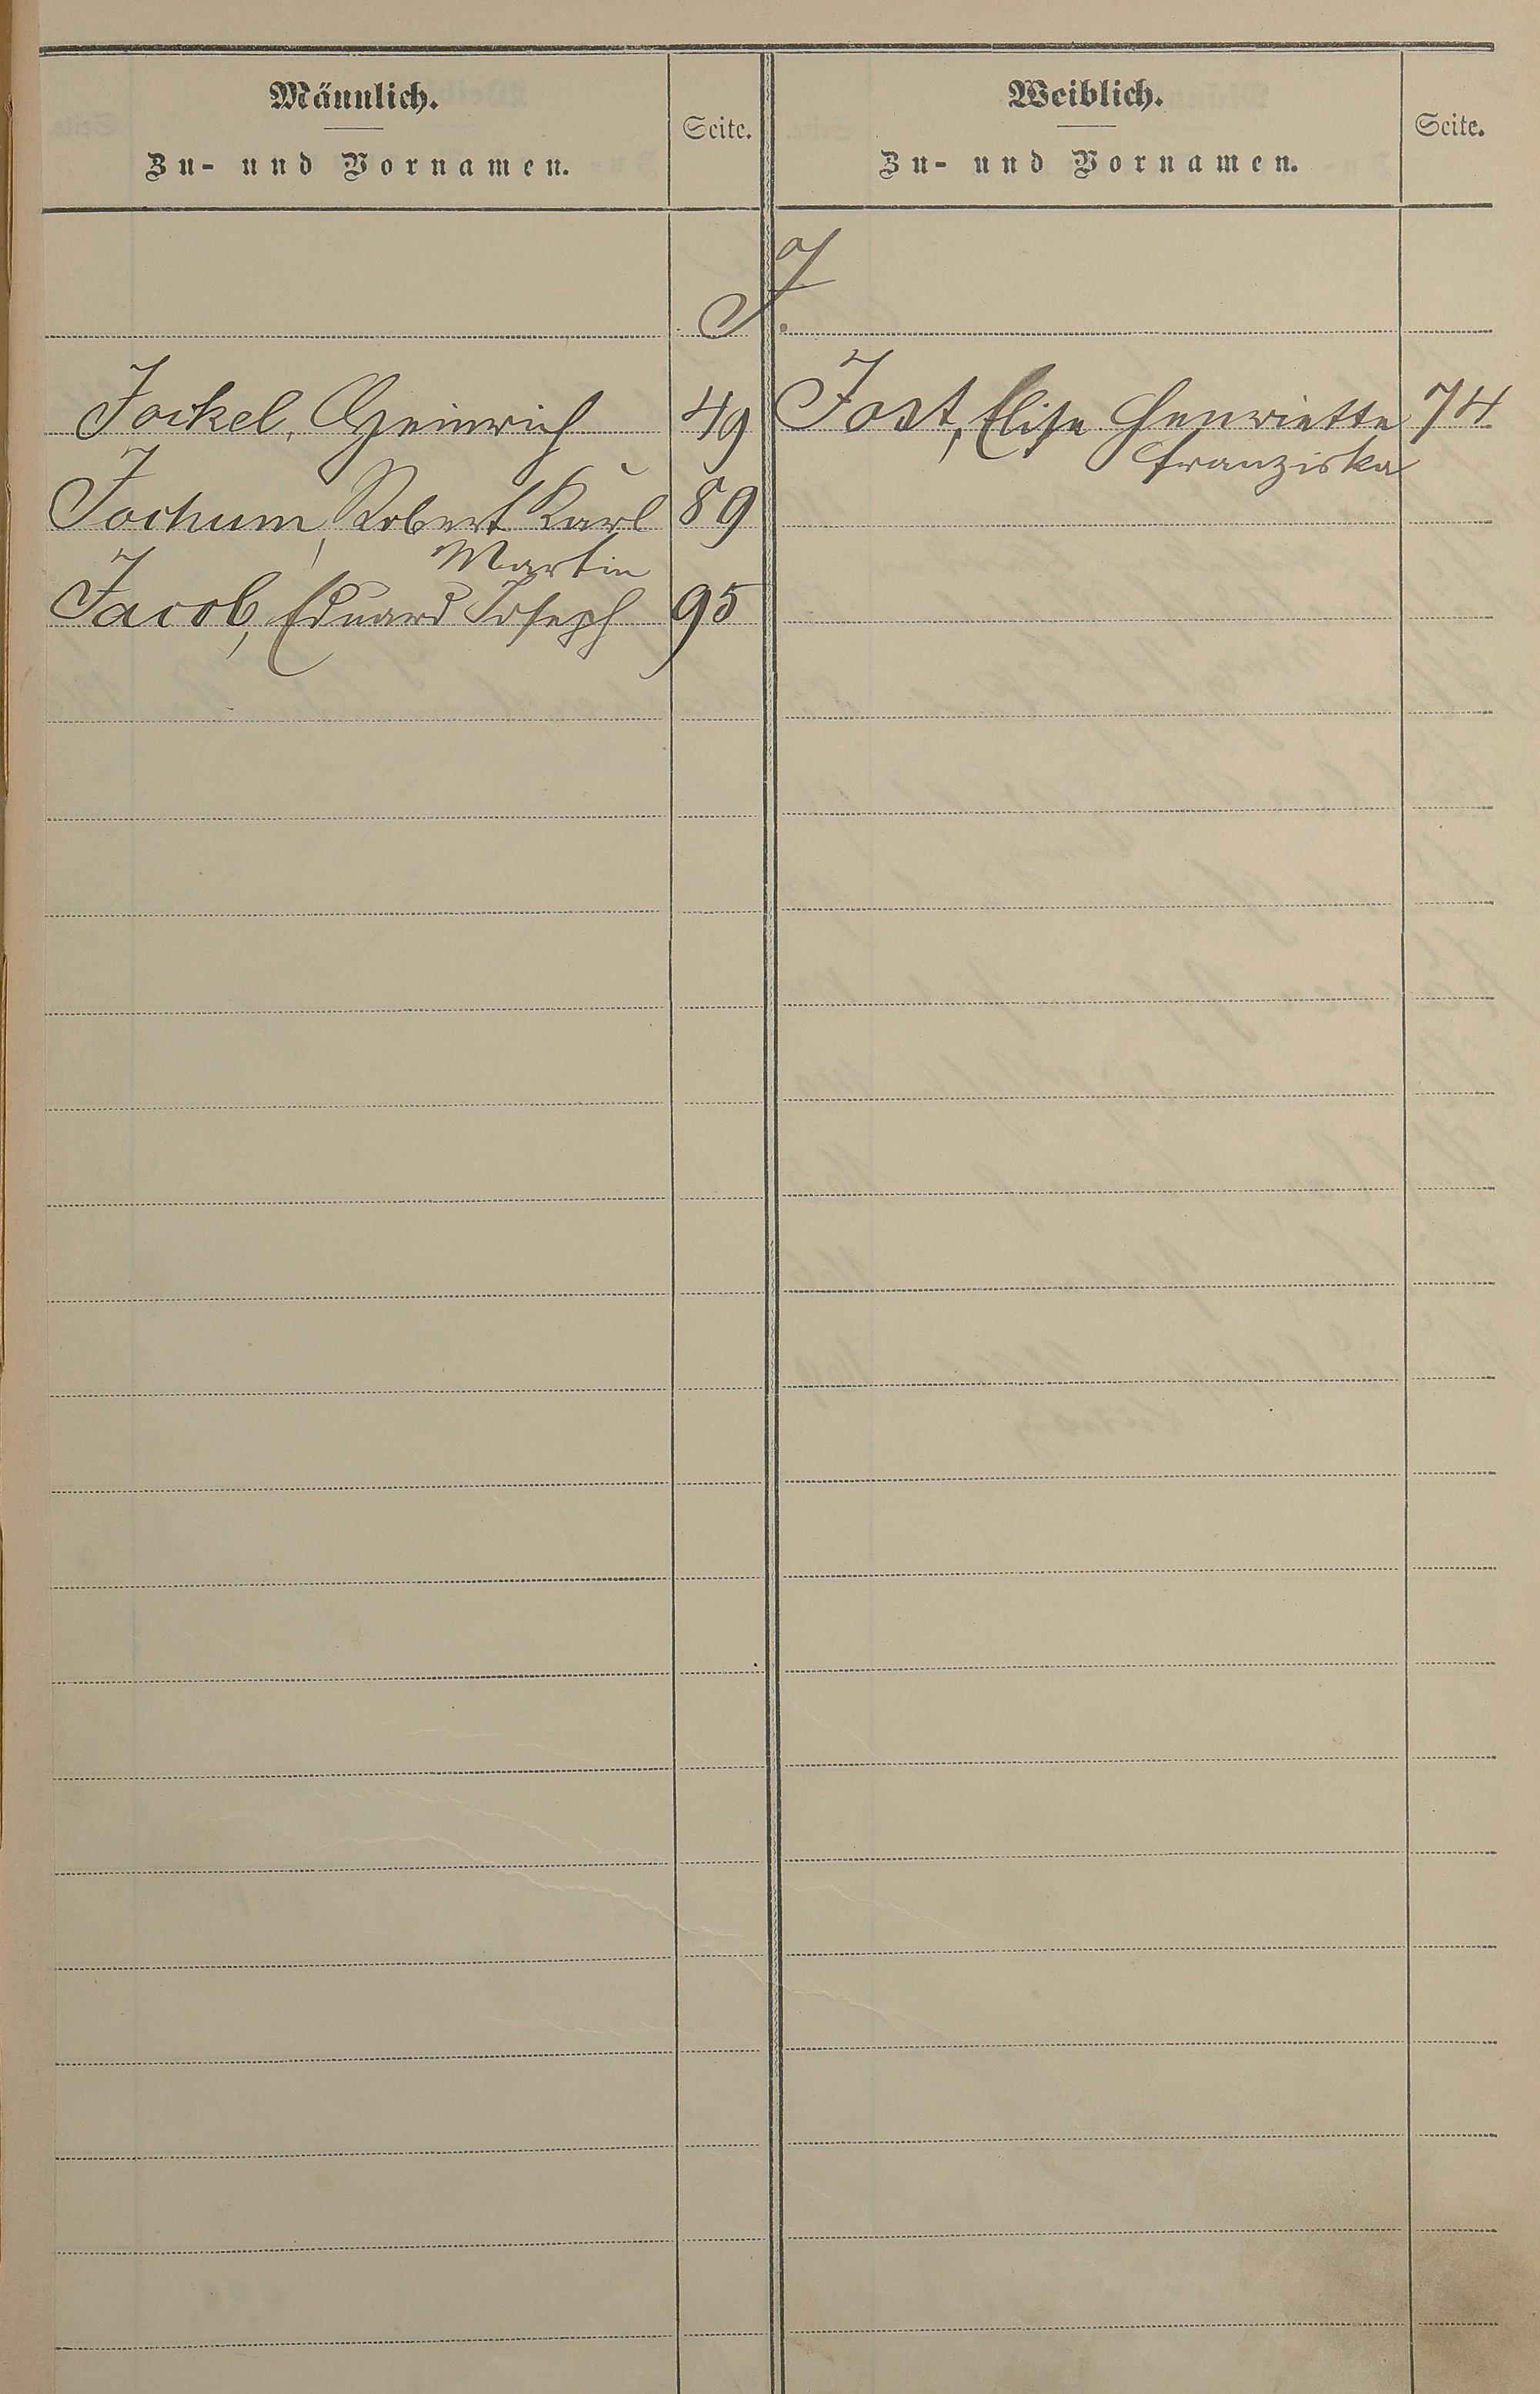 Männlich.
Zu- und Vornamen.
Seite.
Weiblich.
Zu- und Vornamen.
Seite.
J.
Jockel, Heinrich 49
Jochum, Robert Karl 89
Martin
Jacob, Eduard Joseph 95
Jost, Elise Henriette 74
Franziska